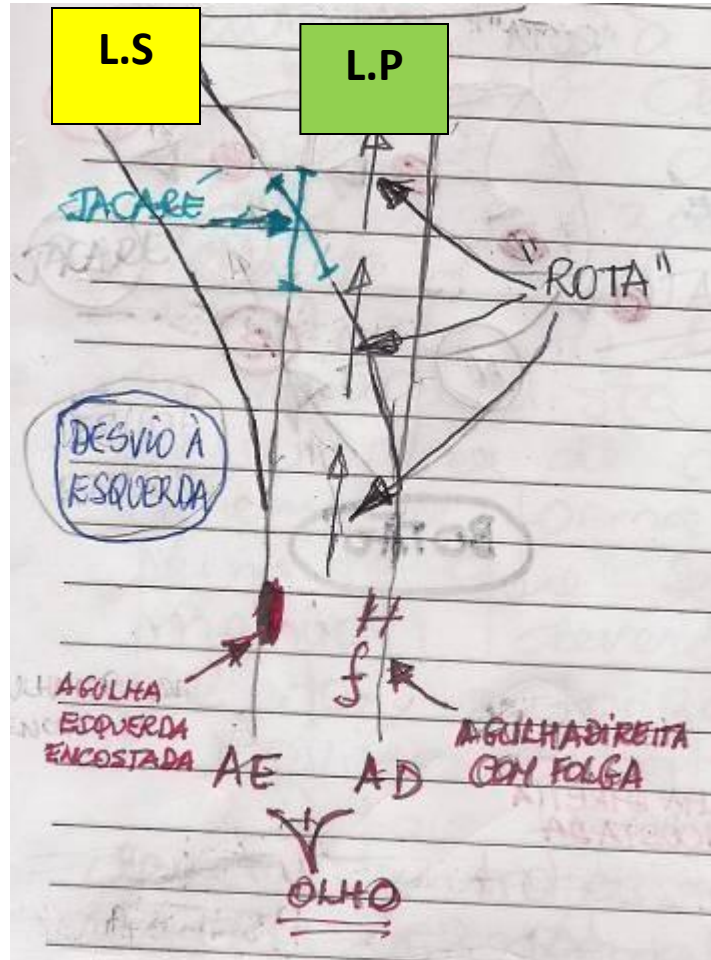 L.S
L.P
JACARÉ
"ROTA"
DESVIO À
ESQUERDA
f
AGULHA
ESQUERDA
ENCOSTADA
AGULHA DIREITA
COM FOLGA
AE
AD
OLHO